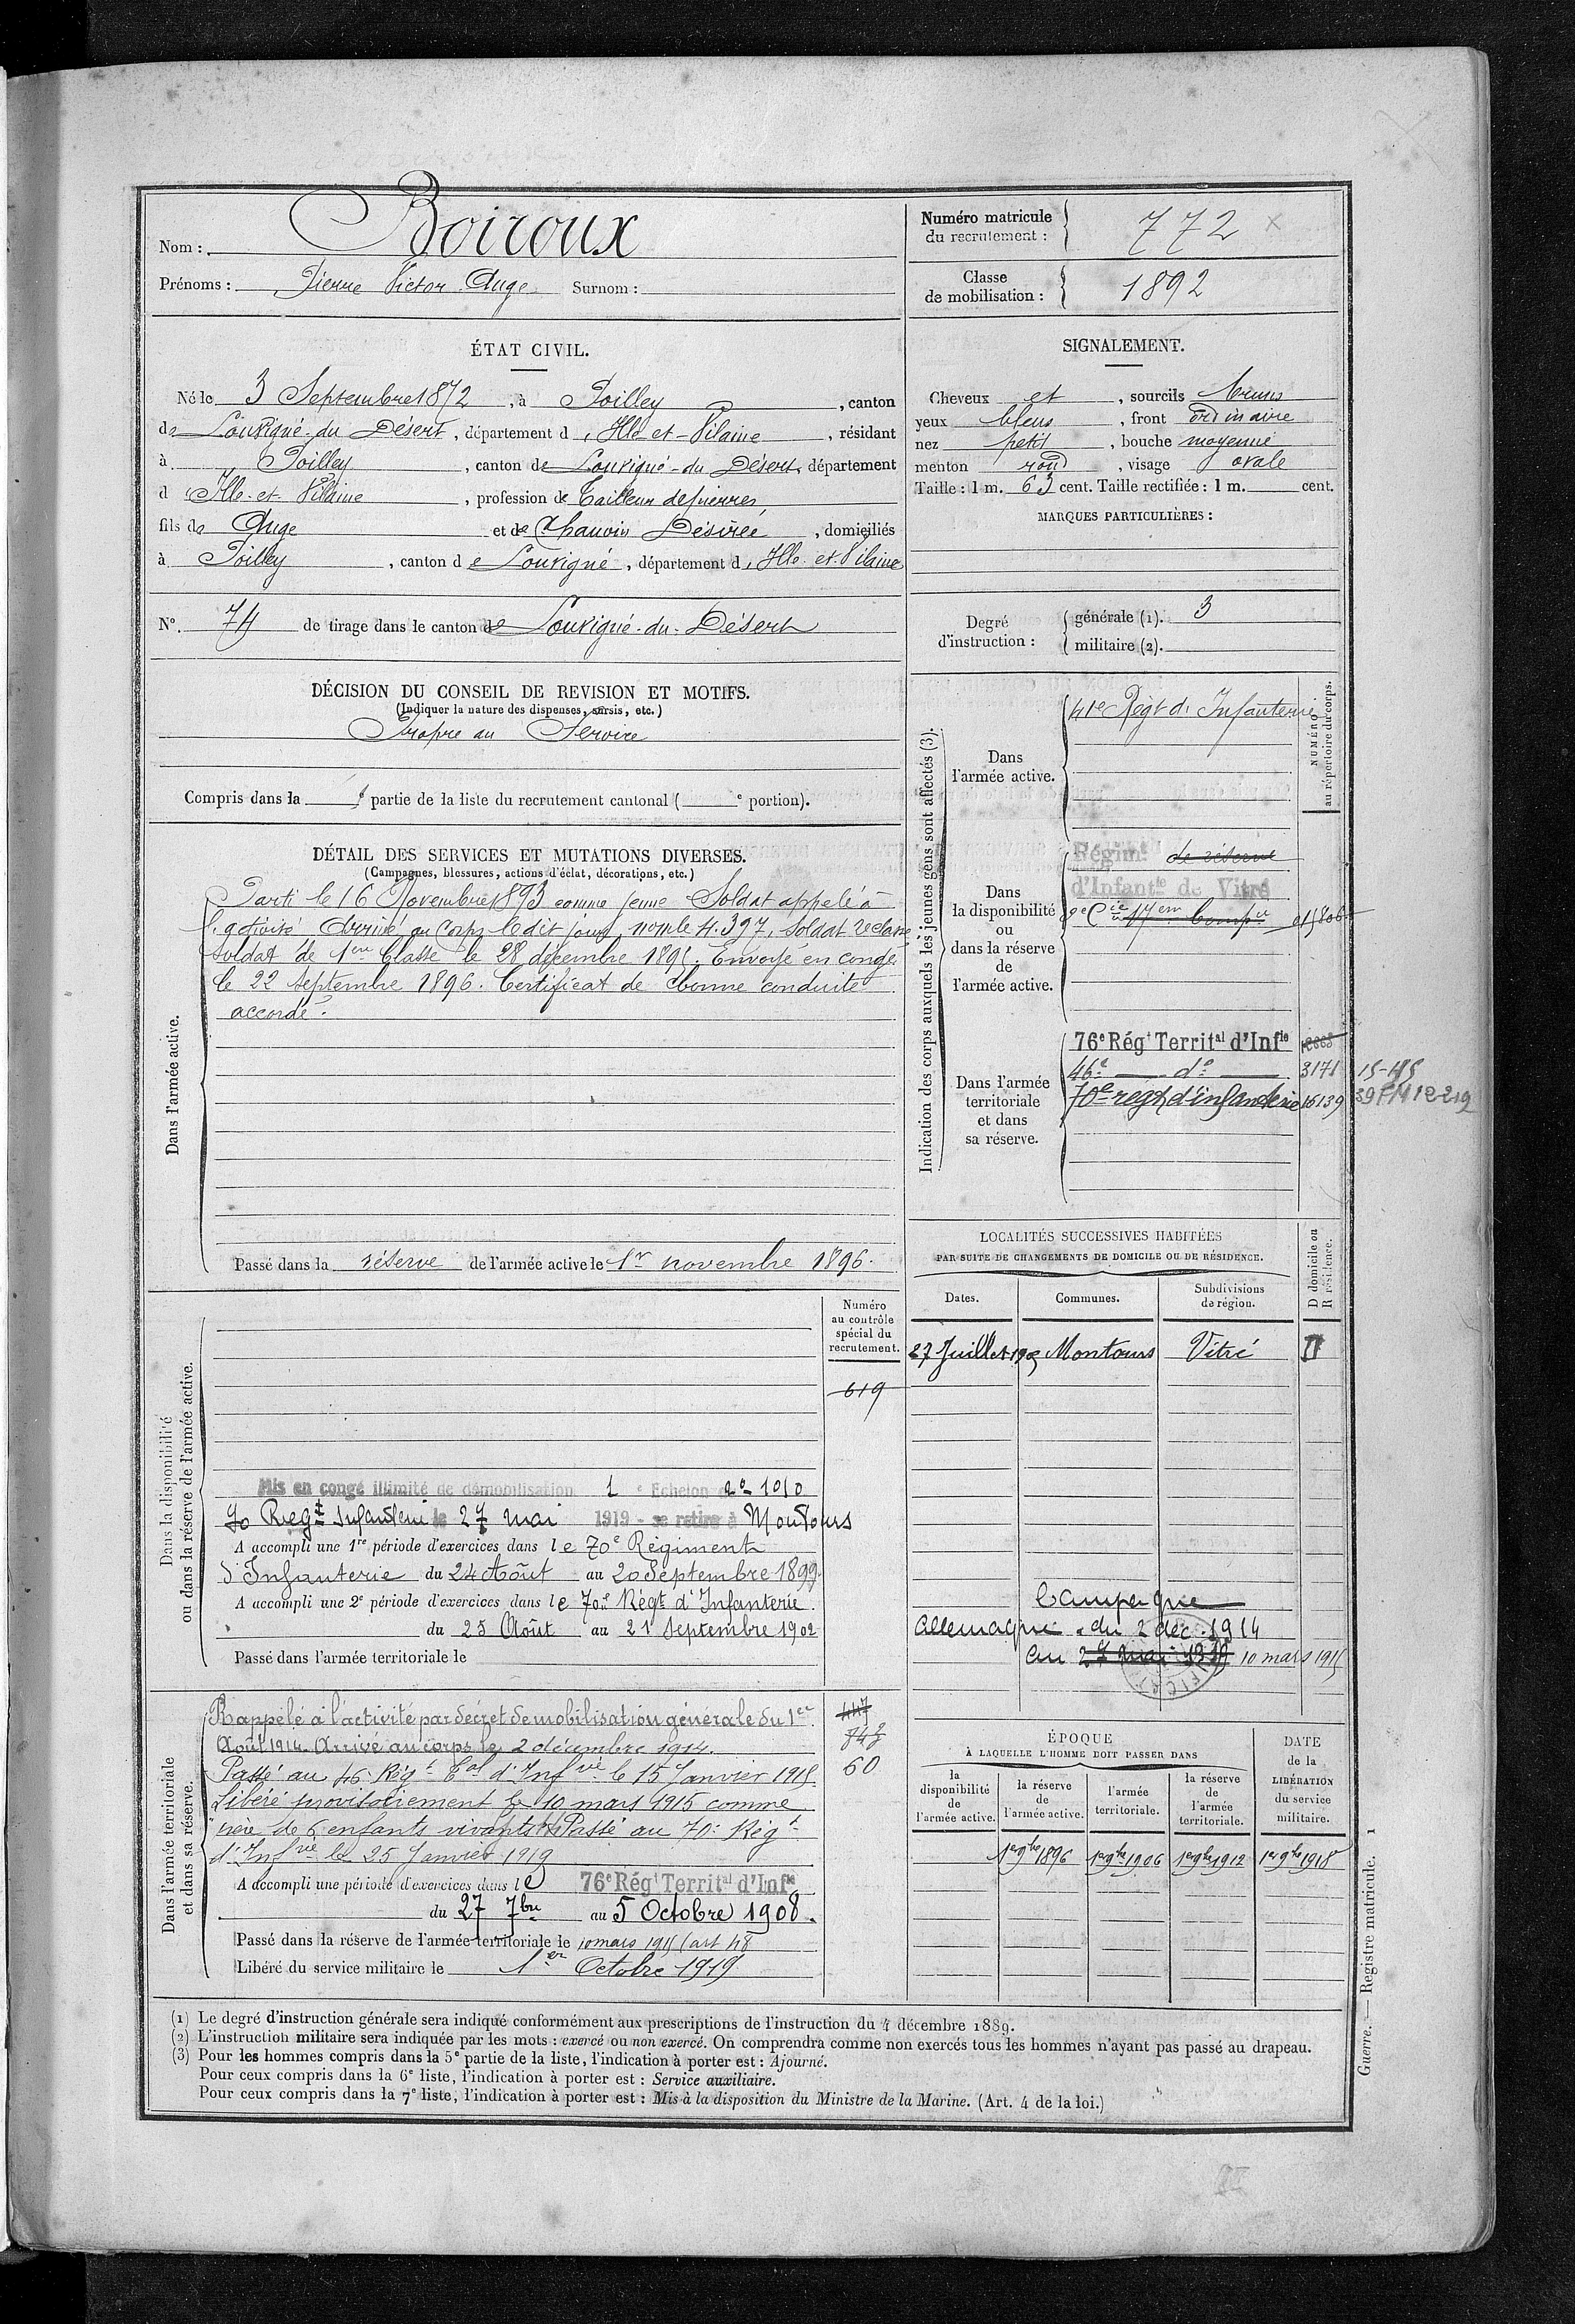 Nom : Boiroux
Prénoms : Pierre Victor Ange Surnom :
Numéro matricule du recrutement : 772
Classe de mobilisation : 1892
ÉTAT CIVIL.
Né le 3 Septembre 1872, à Poilley, canton
de Louvigné-du-Désert, département d'Ille-et-Vilaine, résidant
à Poilley, canton de Louvigné-du-Désert, département
d'Ille-et-Vilaine, profession de Tailleur de pierres,
fils de Ange et de Chauvin Désirée, domiciliés
à Poilley, canton de Louvigné, département d'Ille-et-Vilaine
N° 74 de tirage dans le canton de Louvigné-du-Désert
SIGNALEMENT.
Cheveux et, sourcils bruns
yeux bleus, front ordinaire
nez petit, bouche moyenne
menton rond, visage ovale
Taille : 1 m. 63 cent. Taille rectifiée : 1 m. cent.
MARQUES PARTICULIÈRES :
Degré d'instruction :
générale (1). 3
militaire (2).
DÉCISION DU CONSEIL DE REVISION ET MOTIFS.
(Indiquer la nature des dispenses, sursis, etc.)
Propre au Service
Compris dans la partie de la liste du recrutement cantonal ( e portion).
DÉTAIL DES SERVICES ET MUTATIONS DIVERSES.
(Campagnes, blessures, actions d'éclat, décorations, etc.)
Dans l'armée active.
Parti le 16 Novembre 1893 comme jeune Soldat appelé à
l'activité Arrivé au Corps le dit jour, nomle 4.397, soldat 2e classe
Soldat de 1ere Classe le 28 décembre 1895. Envoyé en congé
le 22 septembre 1896. Certificat de bonne conduite
accordé.
Passé dans la réserve de l'armée active le 1er novembre 1896.
Indication des corps auxquels les jeunes gens sont affectés (3).
NUMÉRO au répertoire du corps.
Dans l'armée active.
41e Régt d'Infanterie
Dans la disponibilité ou dans la réserve de l'armée active.
Régimt de réserve
d'Infantie de Vitré
9e Cie 17em Compie
Dans l'armée territoriale et dans sa réserve.
76e Régt Territal d'Infie
46e — do — 3171 15-485
70e régt d'infanterie 16139
LOCALITÉS SUCCESSIVES HABITÉES
PAR SUITE DE CHANGEMENTS DE DOMICILE OU DE RÉSIDENCE.
Dates. Communes. Subdivisions de région. D domicile ou R résidence.
27 Juillet Montours Vitré D
Campagne
Allemagne du 2 déc. 1914
au 27 mai 1919 10 mars 1915
Dans la disponibilité ou dans la réserve de l'armée active.
Numéro au contrôle spécial du recrutement.
619
Mis en congé illimité de démobilisation 1 e Echelon no 1010
70 Regt Infanterie le 27 mai 1919 - se retire à Montours
A accompli une 1re période d'exercices dans le 70e Régiment
d'Infanterie du 24 Août au 20 Septembre 1899.
A accompli une 2e période d'exercices dans le 70e Régt d'Infanterie.
du 25 Août au 21 Septembre 1902
Passé dans l'armée territoriale le
Dans l'armée territoriale et dans sa réserve.
Rappelé à l'activité par décret de mobilisation générale du 1er
Août 1914. Arrivé au corps le 2 décembre 1914.
Passé au 46e Régt Tal d'Infie le 15 Janvier 1915
Libéré provisoirement le 10 mars 1915 comme
père de 6 enfants vivants. Passé au 70e Régt
d'Infie le 25 Janvier 1919
A accompli une période d'exercices dans le 76e Régt Territal d'Infie
du 27 7bre au 5 Octobre 1908.
Passé dans la réserve de l'armée territoriale le 10 mars 1915 (art 48
Libéré du service militaire le 1er Octobre 1919
447
60
ÉPOQUE
À LAQUELLE L'HOMME DOIT PASSER DANS
la disponibilité de l'armée active.
la réserve de l'armée active.
l'armée territoriale.
la réserve de l'armée territoriale.
DATE de la LIBÉRATION du service militaire.
1er 9bre 1896 1er 9bre 1906 1er 9bre 1912 1er 9bre 1918
(1) Le degré d'instruction générale sera indiqué conformément aux prescriptions de l'instruction du 4 décembre 1889.
(2) L'instruction militaire sera indiquée par les mots : exercé ou non exercé. On comprendra comme non exercés tous les hommes n'ayant pas passé au drapeau.
(3) Pour les hommes compris dans la 5e partie de la liste, l'indication à porter est : Ajourné.
Pour ceux compris dans la 6e liste, l'indication à porter est : Service auxiliaire.
Pour ceux compris dans la 7e liste, l'indication à porter est : Mis à la disposition du Ministre de la Marine. (Art. 4 de la loi.)
Guerre. — Registre matricule. 1